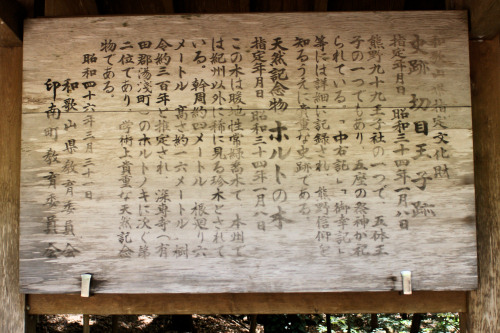 和歌山県指定文化財
史跡 切目王子跡
指定年月日 昭和三十四年一月八日
熊野九十九王子社の一つで、五体王
子の一つでもあり、五座の祭神が祀
られている。「中右記」「御幸記」
等には詳細に記録され、熊野信仰を
知るうえに貴重な史跡である。
天然記念物 ホルトの木
指定年月日 昭和三十四年一月八日
この木は暖地性常緑喬木で、本州で
は紀州以外に稀に見る珍木とされて
いる。幹周約四メートル、根廻り六
メートル、高さ約一六メートル、樹
令約三百年と推定され、深専寺(有
田郡湯浅町)のホルトノキに次ぐ第
二位であり、学術上貴重な天然記念
物である。
昭和四十六年三月三十一日
和歌山県教育委員会
印南町教育委員会